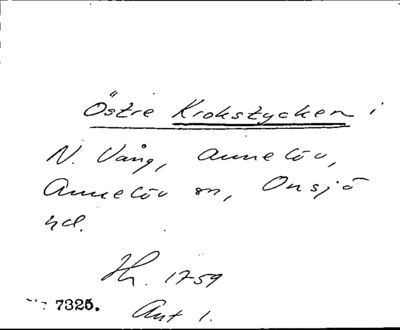 Östre Krokstycken i
N. Vång, Annelöv,
Annelöv sn, Onsjö
hd.
Hr. 1759
7325.
Akt 1.